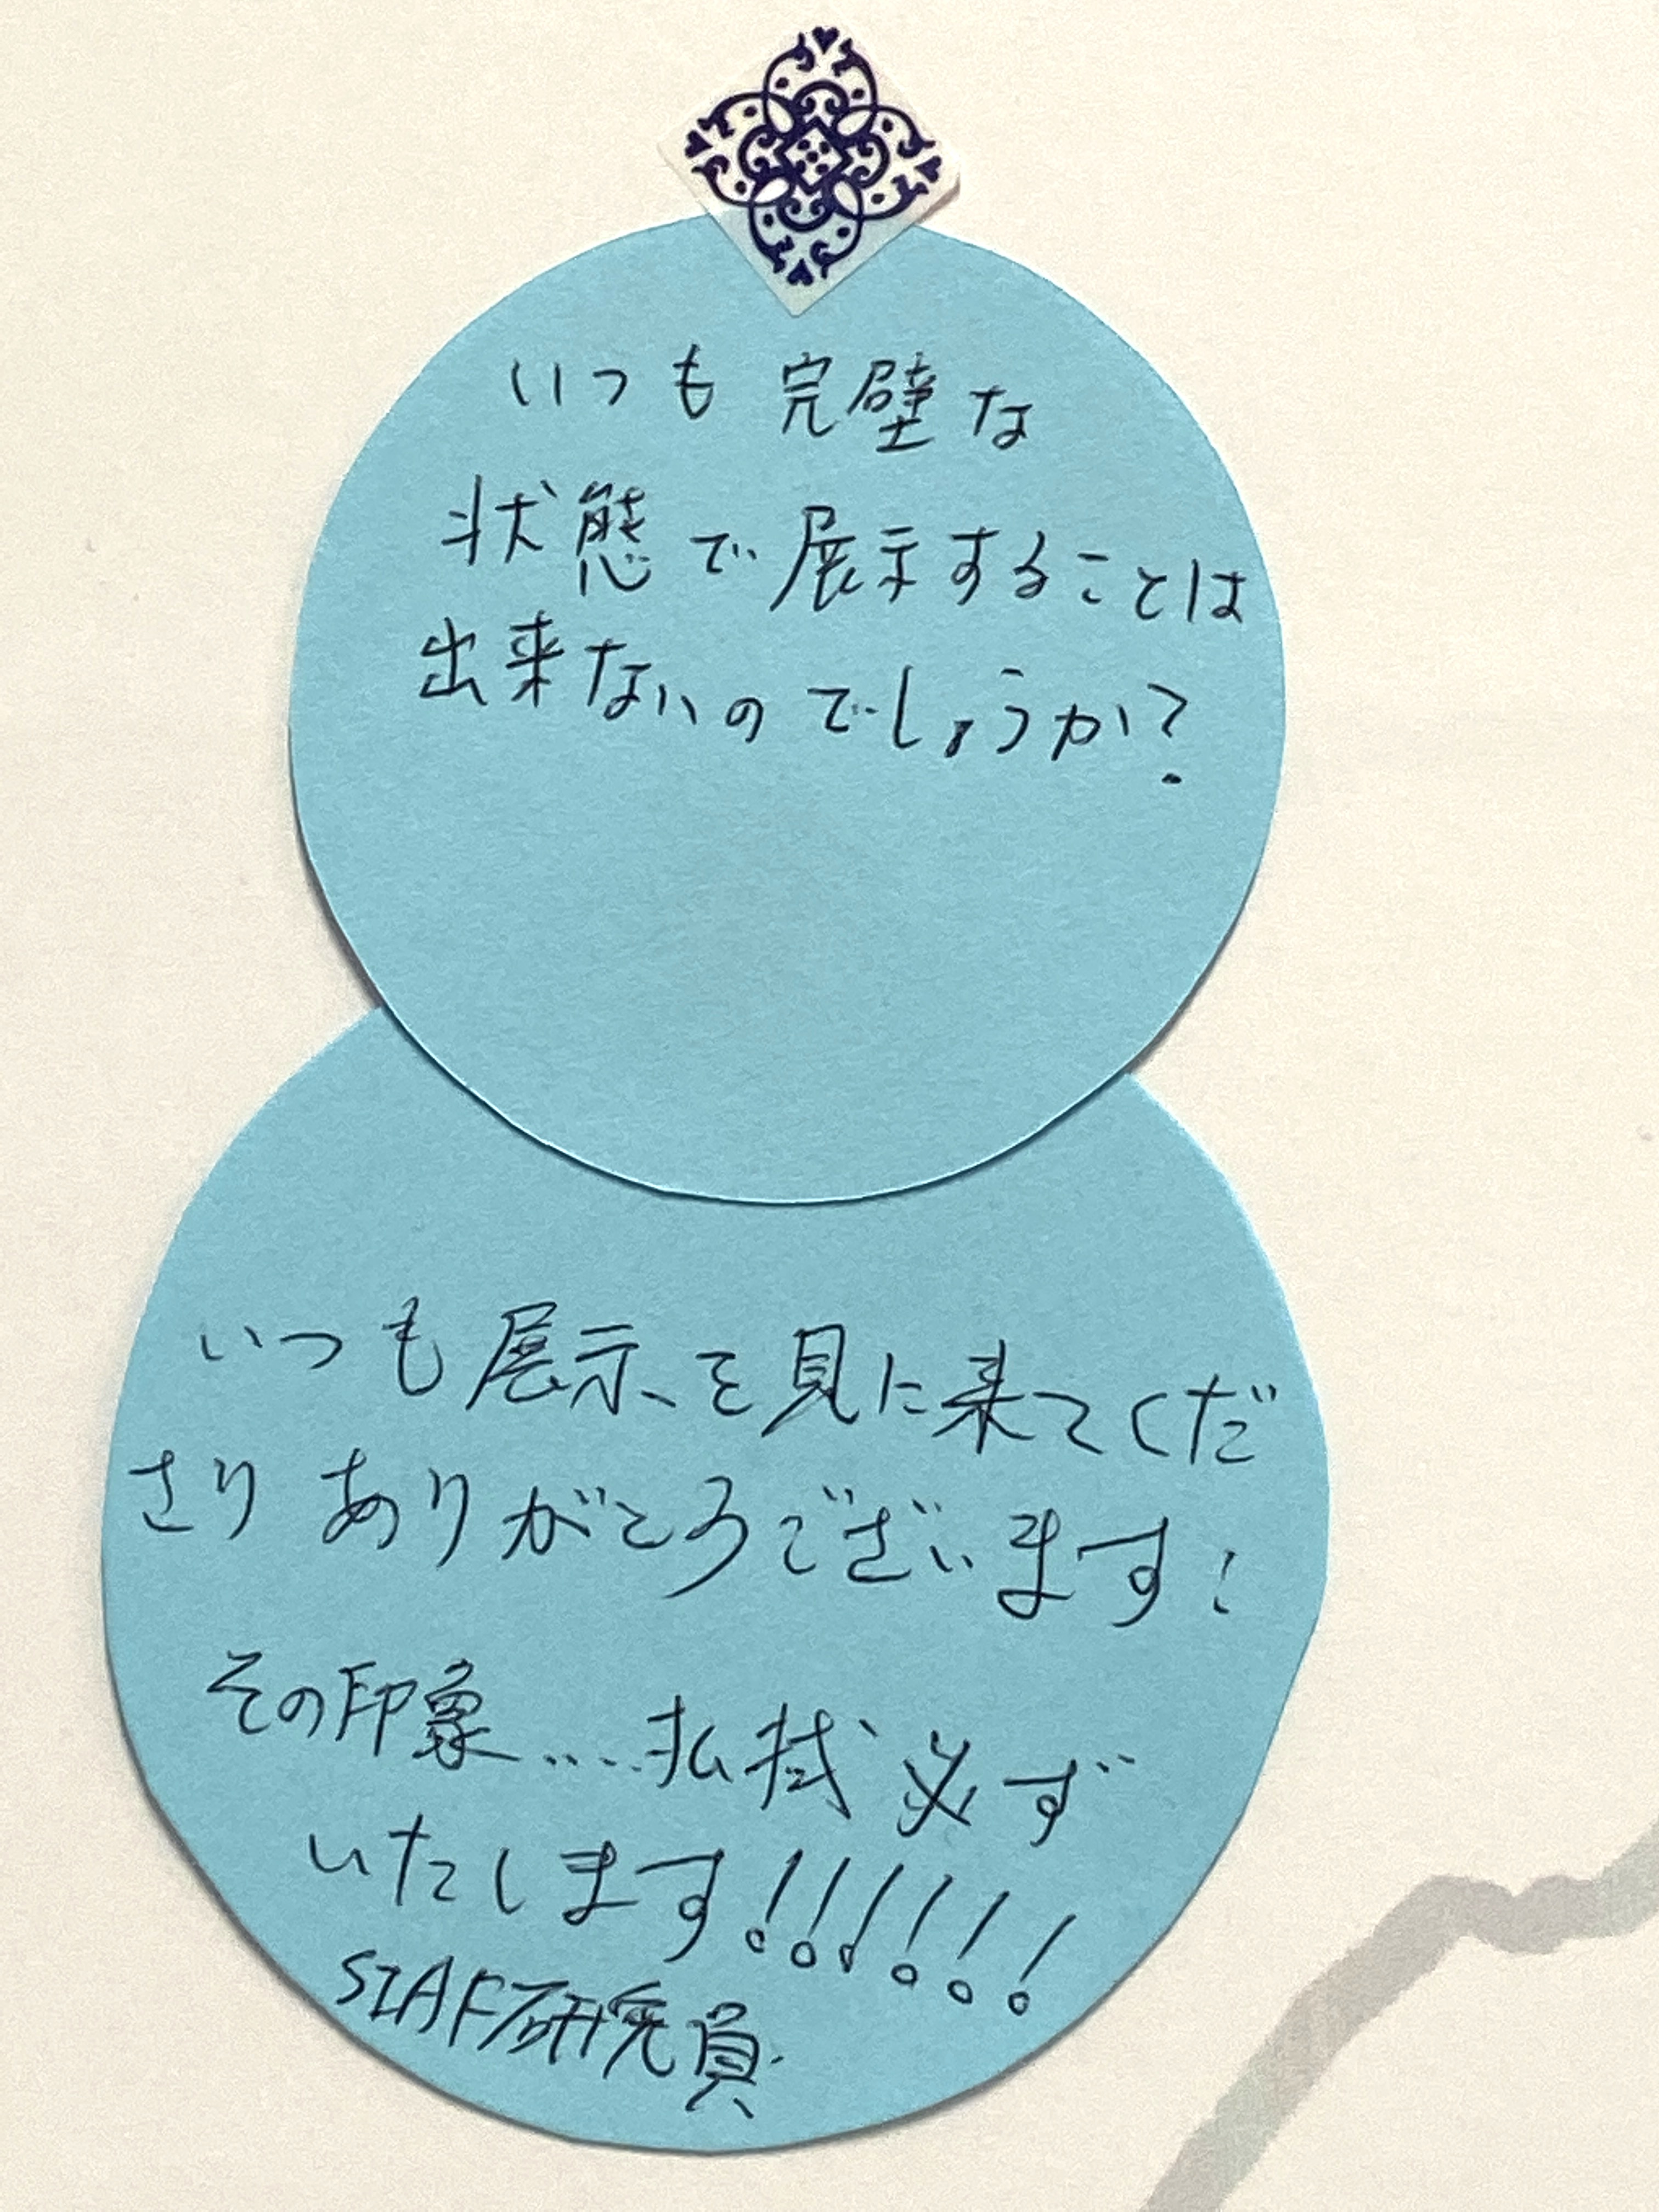 いつも完璧な
状態で展示することは
出来ないのでしょうか?
いつも展示を見に来てくだ
さりありがとうございます!
その印象....払拭必ず
いたします!!!!!!
SIAF研究員